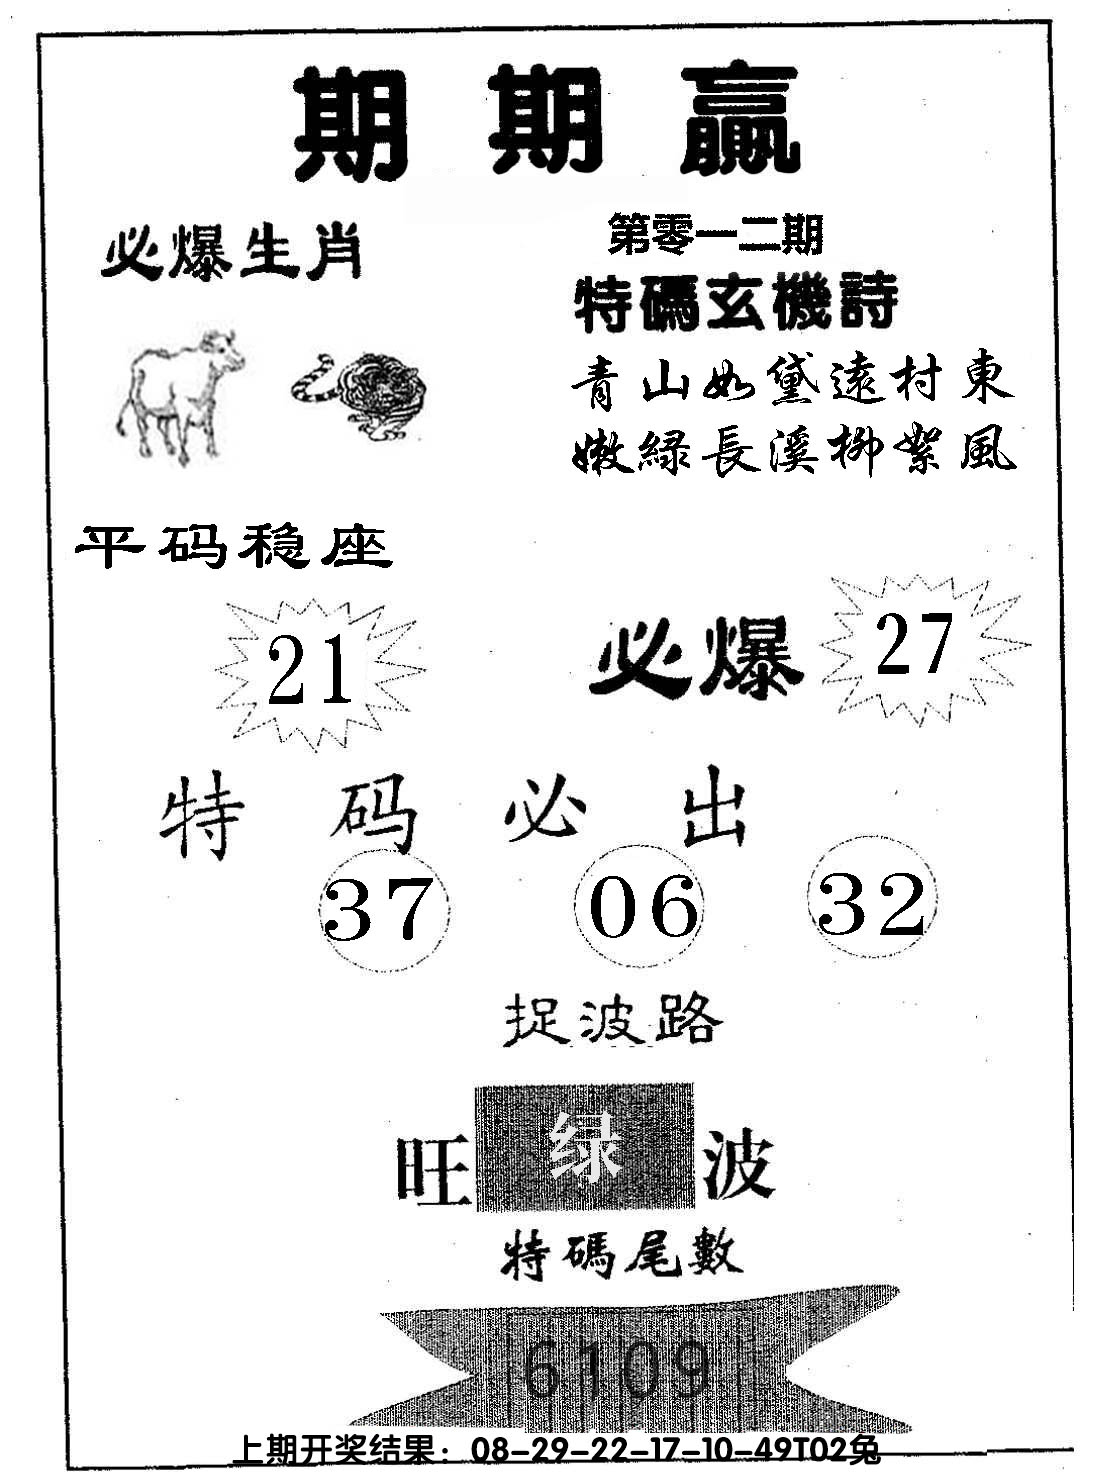 期期赢
必爆生肖
第零一二期
特碼玄機詩
青山如黛遠村東
嫩緑長溪柳絮風
平码稳座
21
必爆 27
特码必出
37 06 32
捉波路
旺 绿 波
特碼尾數
6109
上期开奖结果：08-29-22-17-10-49T02兔